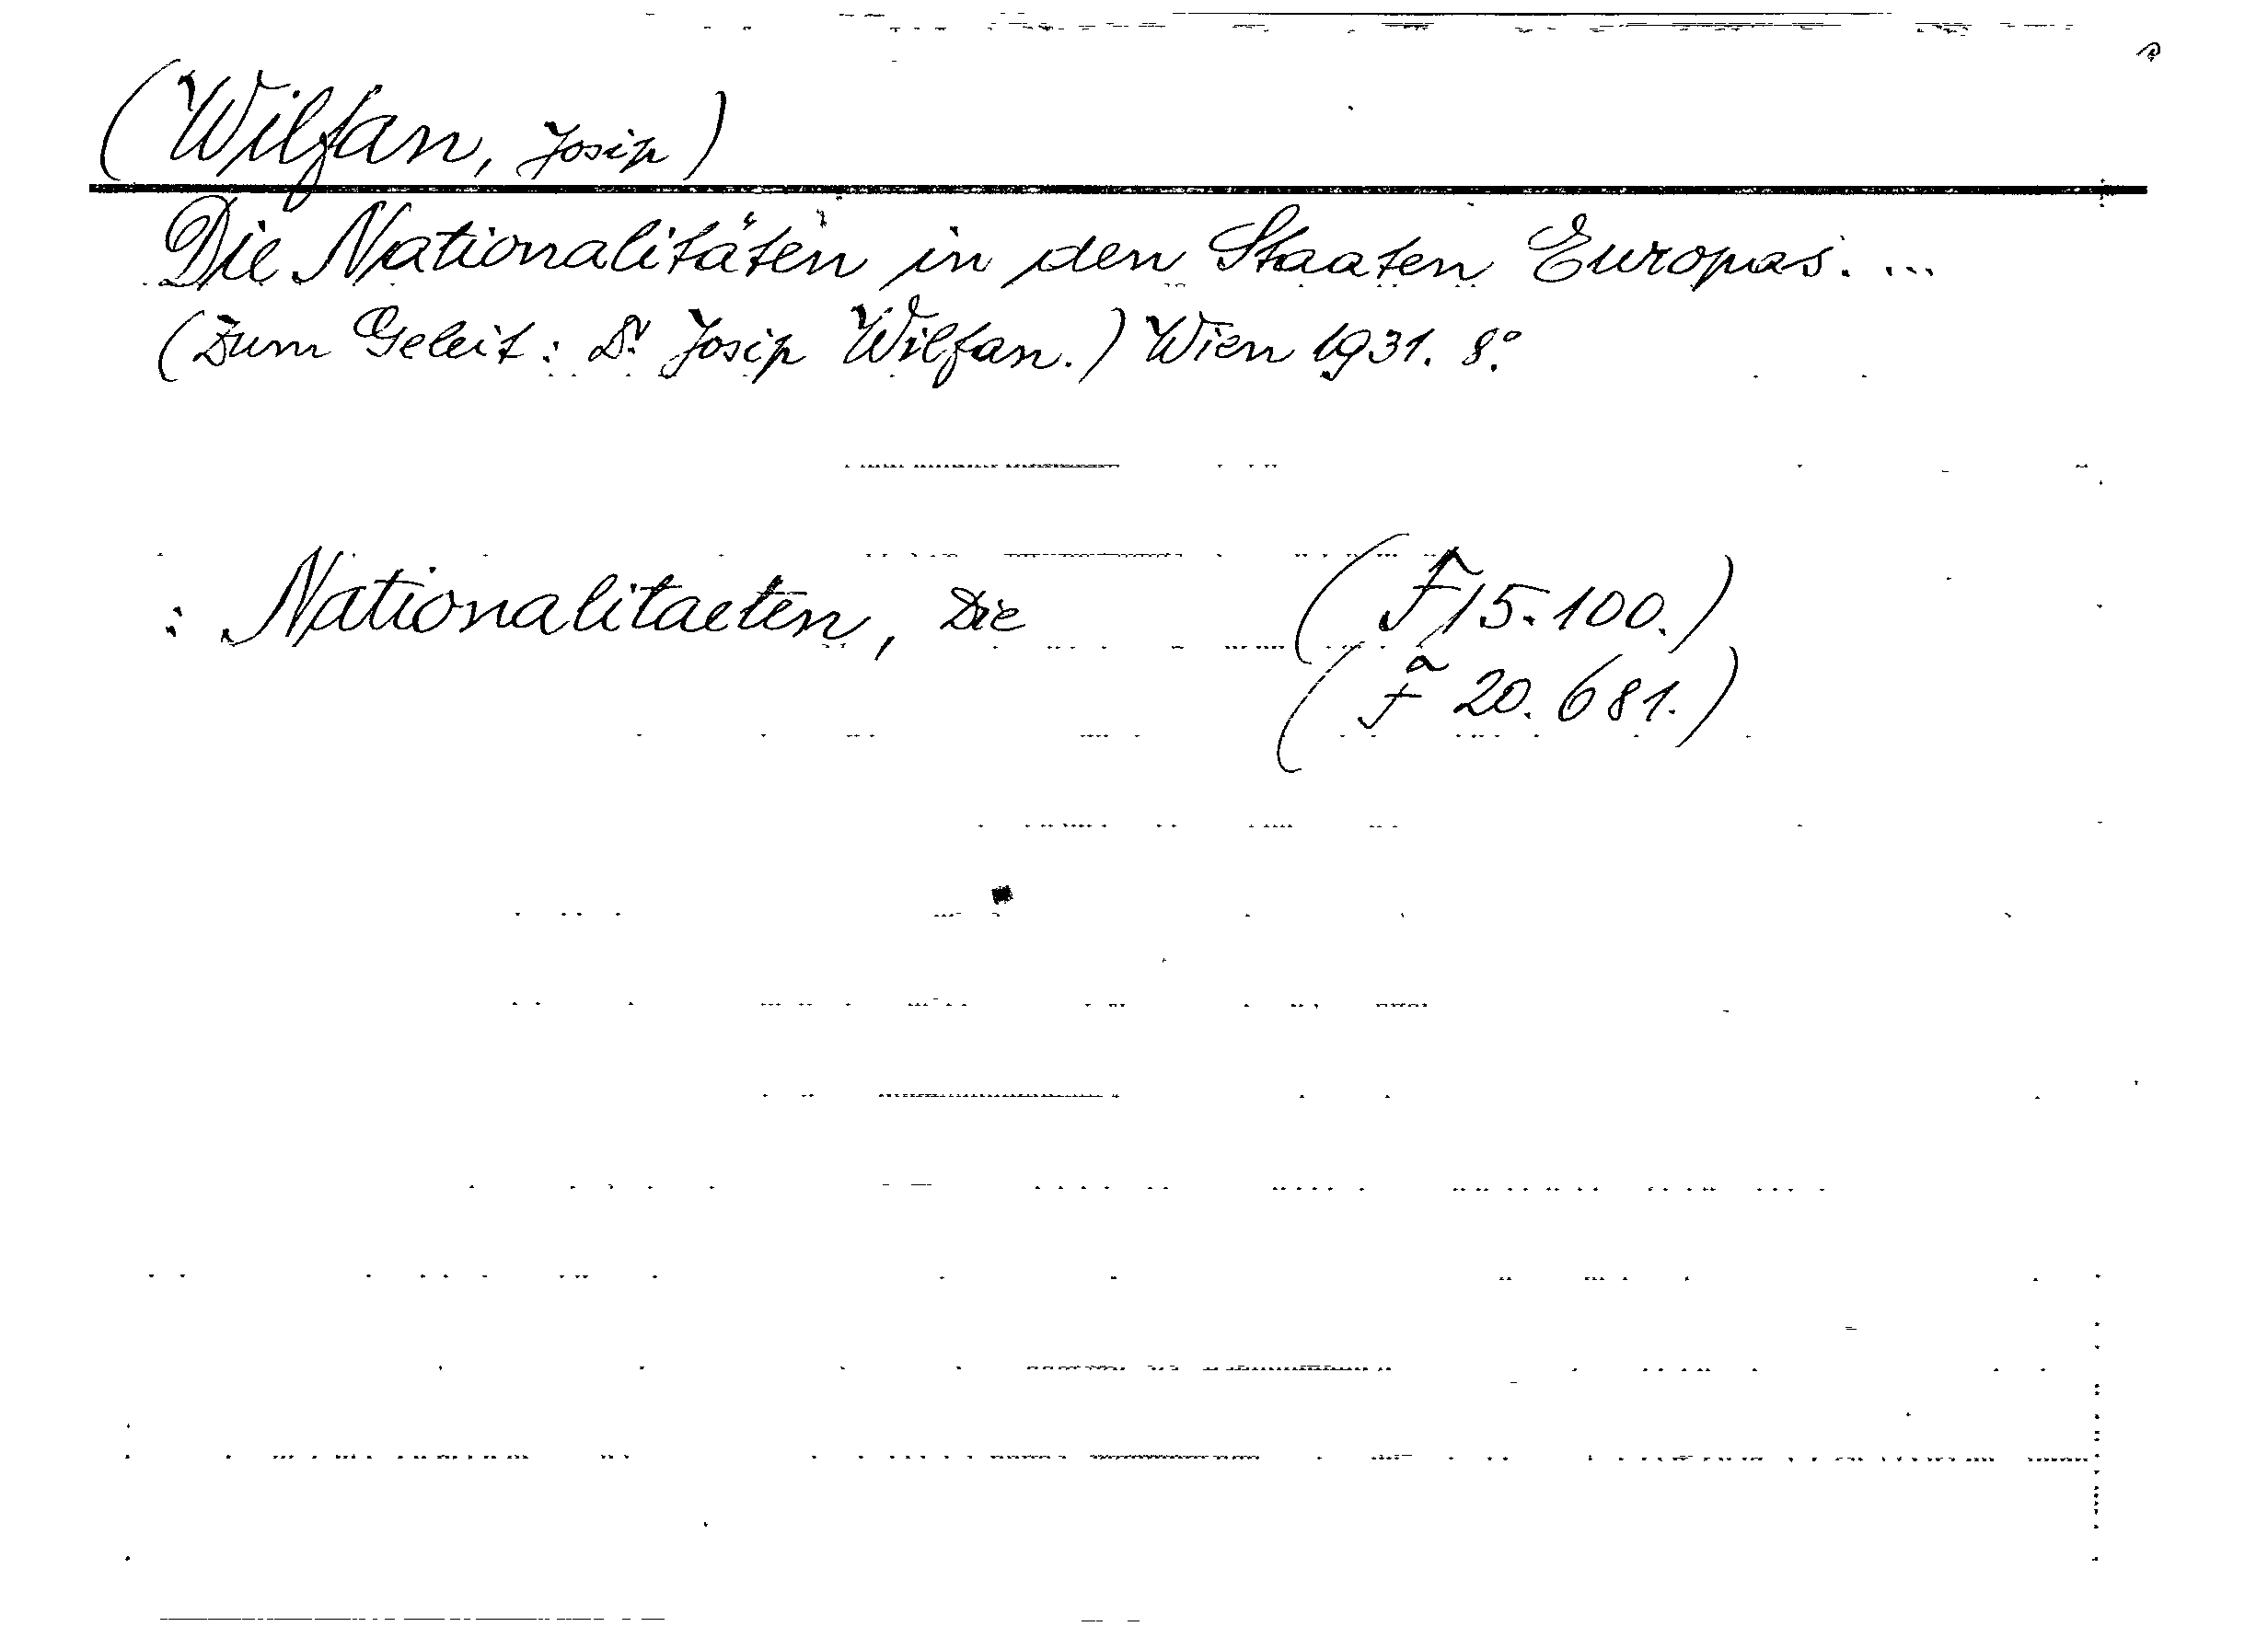 (Wilfan, Josip)
Die Nationalitäten in den Staaten Europas. ...
(Zum Geleit: Dr. Josip Wilfan.) Wien 1931. 8.°
: Nationalitaeten, Die (F 15.100.)
(F 20.681.)